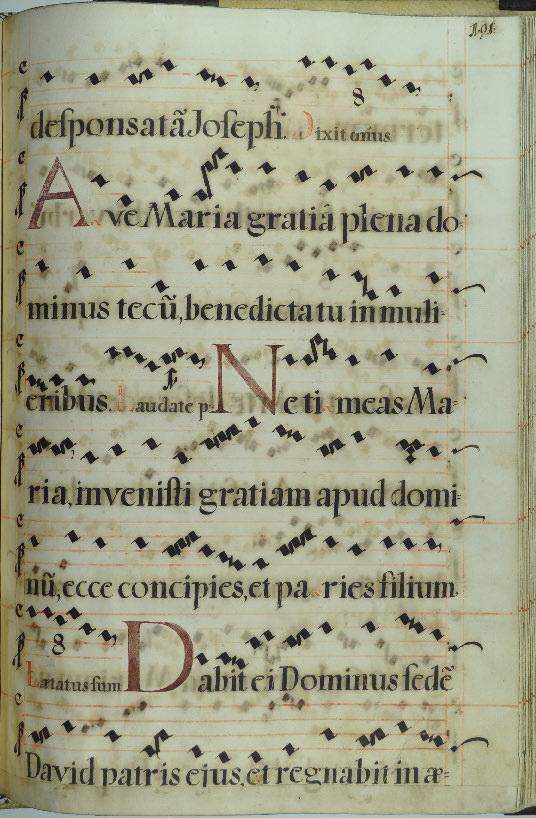 191.
desponsatã Joseph. Dixit dñus 8
Ave Maria gratiâ plena do-
minus tecũ, benedicta tu in muli-
eribus. Laudate p. Ne timeas Ma-
ria, invenisti gratiam apud domi-
nũ, ecce concipies, et paries filium.
8 Lætatus sum Dabit ei Dominus sedẽ
David patris ejus, et regnabit in æ-